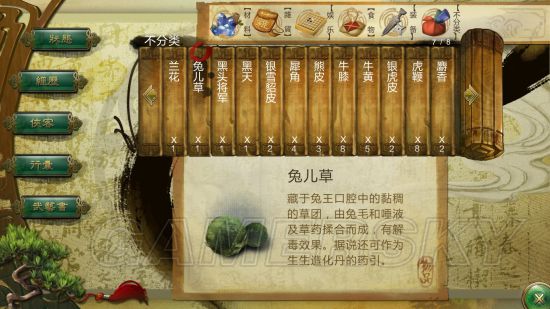 【材料】
【娱乐】
【食物】
【装备】
【不分类】
不分类
7 / 8
兰花
x1
兔儿草
x1
黑头将军
x1
黑天
x1
银雪貂皮
x2
犀角
x4
熊皮
x3
牛膝
x8
牛黄
x5
银虎皮
x2
虎鞭
x8
麝香
x2
狀態
經歷
行囊
兔儿草
藏于兔王口腔中的黏稠
的草团，由兔毛和唾液
及草药揉合而成，有解
毒效果。据说还可作为
生生造化丹的药引。
物品
GAMERSKY